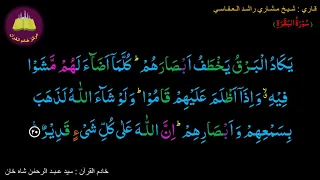 قاری : شیخ مشاری راشد العفاسی
(سُوْرَةُ الْبَقَرَةِ)
يَكَادُ الْبَرْقُ يَخْطَفُ اَبْصَارَهُمْ ؕ كُلَّمَاۤ اَضَآءَ لَهُمْ مَّشَوْا
فِيْهِ ۙ وَاِذَاۤ اَظْلَمَ عَلَيْهِمْ قَامُوْا ؕ وَلَوْ شَآءَ اللّٰهُ لَذَهَبَ
بِسَمْعِهِمْ وَاَبْصَارِهِمْ ؕ اِنَّ اللّٰهَ عَلٰى كُلِّ شَىْءٍ قَدِيْرٌ ﴿۲۰﴾
خادم القرآن : سید عبد الرحمٰن شاہ خان